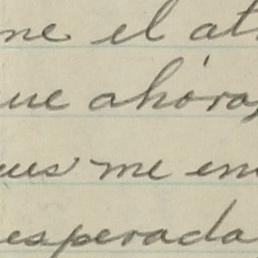 ne el at
ue ahóra,
ues me en
esperada